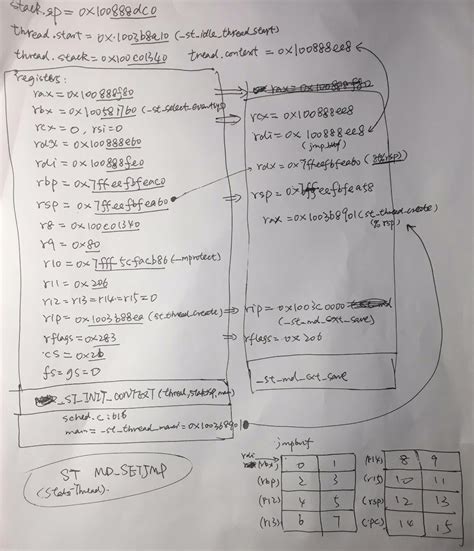 stack.sp = 0x100888dc0
thread.start = 0x1003b8a10 (_st_idle_thread_start)
thread.stack = 0x100c01340
thread.context = 0x100888ee8
registers:
rax = 0x100888f80
rbx = 0x1005817b0
rcx = 0, rsi = 0
rdx = 0x100888eb0
rdi = 0x100888fe0
rbp = 0x7ffeefbfeac0
rsp = 0x7ffeefbfeab0
r8 = 0x100c01340
r9 = 0x80
r10 = 0x7fff5cfacb86 (_mprotect)
r11 = 0x206
r12 = r13 = r14 = r15 = 0
rip = 0x1003b88ea (st_thread_create)
rflags = 0x283
cs = 0x2b
fs = gs = 0
_ST_INIT_CONTEXT (thread, stack.sp,
sched.c:616
main = _st_thread_main = 0x1003b8901
rcx = 0x100888ee8
rdi = 0x100888ee8
(jmpbuf)
rdx = 0x7ffeefbfeab0 (rsp)
rsp = 0x7ffeefbfea58
rax = 0x1003b8901 (st_thread_create)
(%rsp)
rip = 0x1003c0000
(_st_md_cxt_save)
rflags = 0x206
_st_md_cxt_save
ST MD_SETJMP
(StateThread).
jmpbuf
rdi
(rbx) 0 1
(rbp) 2 3
(r12) 4 5
(r13) 6 7
(r14) 8 9
(r15) 10 11
(rsp) 12 13
(pc) 14 15